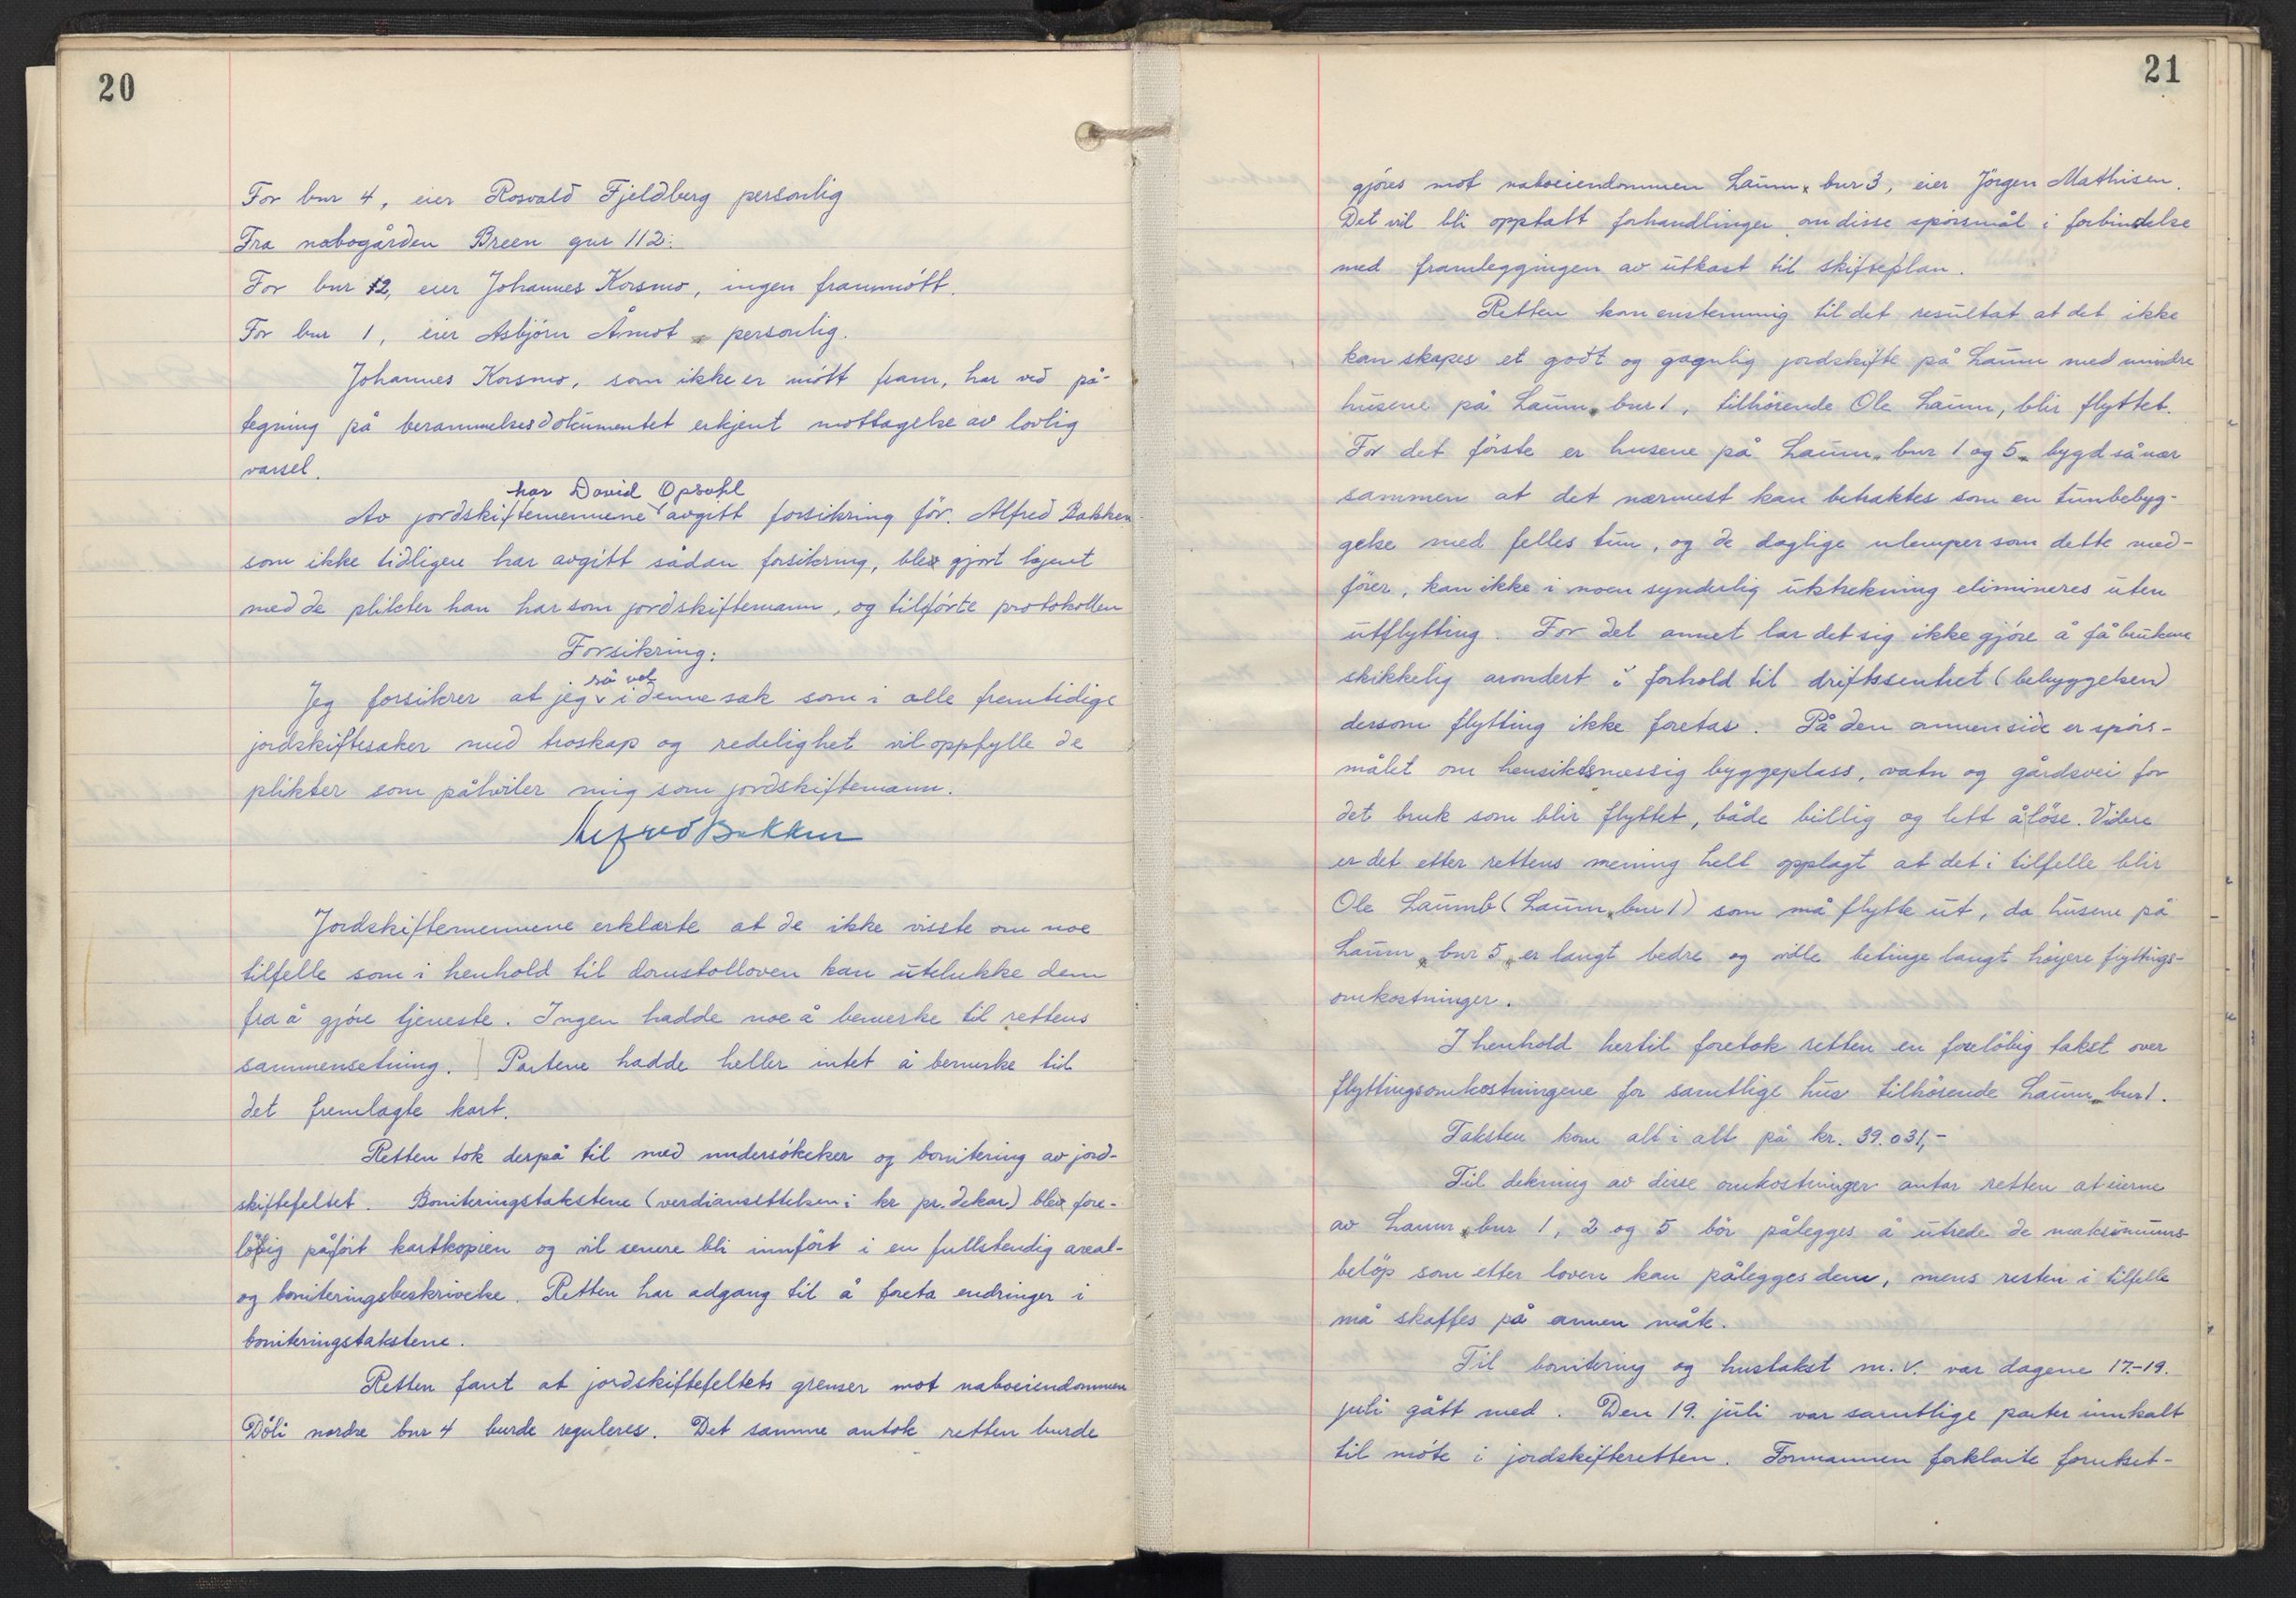 20
For bnr 4, eier Rosvald Fjeldberg personlig
Fra nabogården Breen gnr 112:
For bnr 12, eier Johannes Korsmo, ingen frammött.
For bnr 1, eier Asbjörn Åmot personlig.
Johannes Korsmo, som ikke er mött fram, har ved på-
tegning på berammelsesdokumentet erkjent mottagelse av lovlig
varsel.
har David Opsahl
Av jordskiftemennene avgitt forsikring för. Alfred Bakken
som ikke tidligere har avgitt sådan forsikring, blev gjort kjent
med de plikter han har som jordskiftemann, og tilförte protokollen
Forsikring:
så vel
Jeg forsikrer at jeg i denne sak som i alle fremtidige
jordskiftesaker med troskap og redelighet vil oppfylle de
plikter som påhviler mig som jordskiftemann.
Alfred Bakken
Jordskiftemennene erklærte at de ikke visste om noe
tilfelle som i henhold til domstolloven kan utelukke dem
fra å gjöre tjeneste. Ingen hadde noe å bemerke til rettens
sammensetning. Partene hadde heller intet å bemerke til
det fremlagte kart.
Retten tok derpå til med undersökelser og bonitering av jord-
skiftefeltet. Boniteringstakstene (verdiansettelsen i kr pr. dekar) blev fore-
löbig påfört kartkopien og vil senere bli innfört i en fullstendig areal-
og boniteringsbeskrivelse. Retten har adgang til å foreta endringer i
boniteringstakstene.
Retten fant at jordskiftefeltets grenser mot naboeiendommen
Döli nordre bnr 4 burde reguleres. Det samme antok retten burde
21
gjöres mot naboeiendommen Laum, bnr 3, eier Jörgen Mathisen.
Det vil bli opptatt forhandlinger om disse spörsmål i forbindelse
med framleggingen av utkast til skifteplan.
Retten kom enstemmig til det resultat at det ikke
kan skapes et godt og gagnlig jordskifte på Laum med mindre
husene på Laum bnr 1, tilhörende Ole Laum, blir flyttet.
For det förste er husene på Laum bnr 1 og 5 bygd så nær
sammen at det nærmest kan betraktes som en tunbebyg-
gelse med felles tun, og de daglige ulemper som dette med-
förer, kan ikke i noen synderlig utstrekning elimineres uten
utflytting. For det annet lar det sig ikke gjöre å få brukene
skikkelig arondert i forhold til driftssentret (bebyggelsen)
dersom flytting ikke foretas. På den annen side er spörs-
målet om hensiktsmessig byggeplass, vatn og gårdsvei for
det bruk som blir flyttet, både billig og lett å löse. Videre
er det etter rettens mening helt opplagt at det i tilfelle blir
Ole Laumb (Laum bnr 1) som må flytte ut, da husene på
Laum bnr 5 er langt bedre og ville betinge langt höyere flyttings-
omkostninger.
I henhold hertil foretok retten en forelöbig takst over
flyttingsomkostningene for samtlige hus tilhörende Laum bnr 1.
Taksten kom alt i alt på kr. 39.031,-
Til dekning av disse omkostninger antar retten at eierne
av Laum bnr 1, 2 og 5 bör pålegges å utrede de maksimums-
belöp som etter loven kan pålegges dem, mens resten i tilfelle
må skaffes på annen måte.
Til bonitering og hustakst m.v. var dagene 17.-19.
juli gått med. Den 19. juli var samtlige parter innkalt
til möte i jordskifteretten. Formannen forklarte forutset-